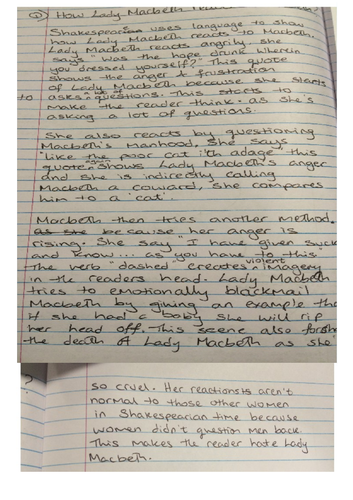 How Lady Macbeth
Shakespeare uses language to show
how Lady Macbeth reacts to Macbeth.
Lady Macbeth reacts angrily, she
says "Was the hope drunk wherein
you dressed yourself?" This quote
shows the anger & frustration
of Lady Macbeth because she starts
to asks questions. This starts to
make the reader think as she's
asking a lot of questions.
She also reacts by questioning
Macbeth's manhood, she says
"like the poor cat i'th adage" this
quote again shows Lady Macbeth's anger
and she is indirectly calling
Macbeth a coward, she compares
him to a 'cat'.
Macbeth then tries another method.
as she because her anger is
rising. She say "I have given suck
and know... as you have to this
The verb "dashed" creates violent imagery
in the readers head. Lady Macbeth
tries to emotionally blackmail
Macbeth by giving an example tha
if she had a baby she will rip
her head off. This scene also
the death of Lady Macbeth as she
?
so cruel. Her reactionsts aren't
normal to those other women
in Shakespearian time because
women didn't question men back.
This makes the reader hate Lady
Macbeth.